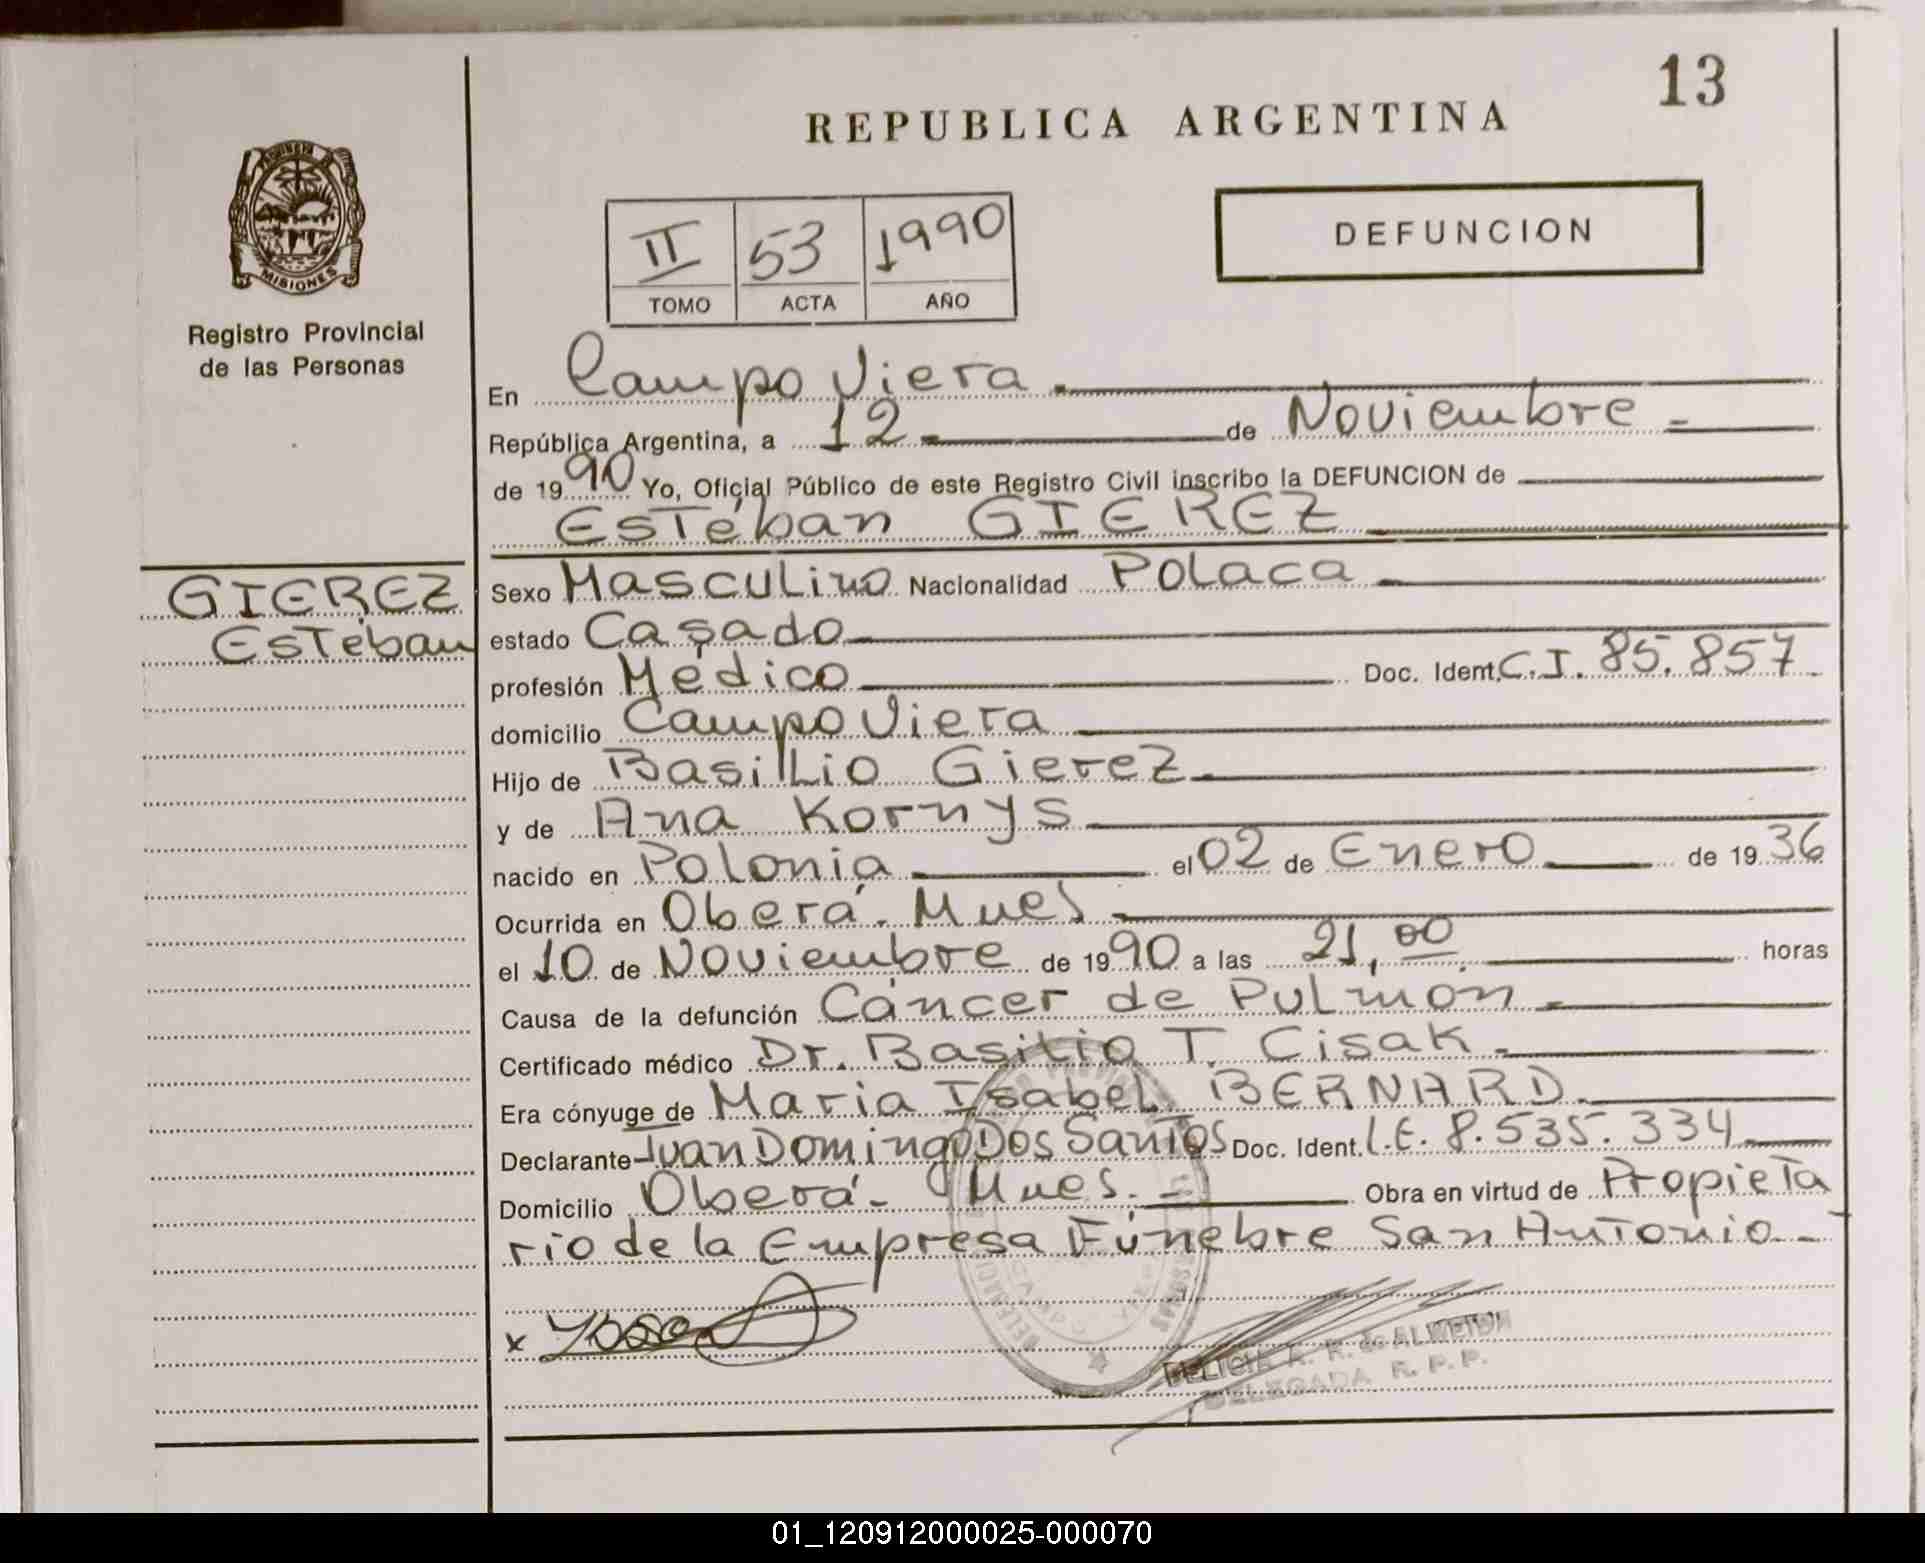 13
REPUBLICA ARGENTINA
II 53 1990
TOMO ACTA AÑO
DEFUNCION
MISIONES
Registro Provincial
de las Personas
GIEREZ
Esteban
En Campo Viera
República Argentina, a 12 de Noviembre
de 1990 Yo, Oficial Público de este Registro Civil inscribo la DEFUNCION de
Esteban GIEREZ
Sexo Masculino Nacionalidad Polaca
estado Casado
profesión Médico Doc. Ident. C.I. 85.857
domicilio Campo Viera
Hijo de Basillio Gierez
y de Ana Kornys
nacido en Polonia el 02 de Enero de 1936
Ocurrida en Oberá - Mnes
el 10 de Noviembre de 1990 a las 21,00 horas
Causa de la defunción Cáncer de Pulmon
Certificado médico Dr. Basilio T. Cisak
Era cónyuge de Maria Isabel BERNARD
Declarante Juan Domingo Dos Santos Doc. Ident. L.E. 8.535.334
Domicilio Oberá - Mnes. Obra en virtud de Propieta
rio de la Empresa Fúnebre San Antonio
x
R. de ALMEIDA
DELEGADA R. P. P.
01_120912000025-000070